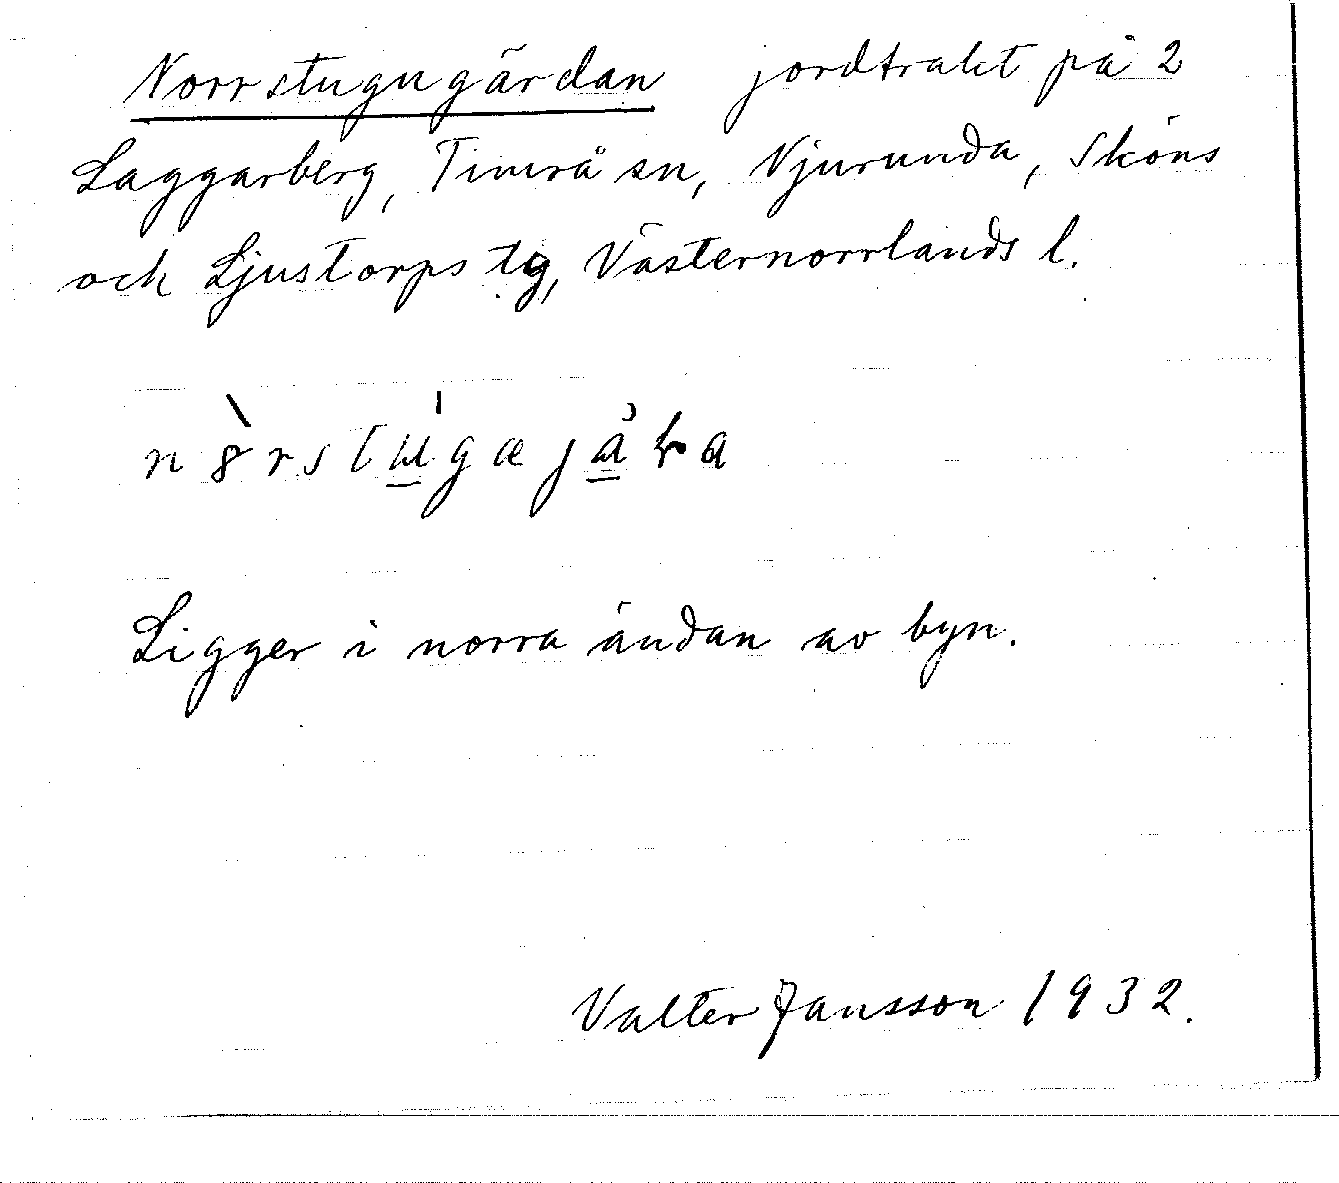 Norrstugugärdan jordtrakt på 2
Laggarberg, Timrå sn, Njurunda, Sköns
och Ljustorps tg, Västernorrlands l.
Ligger i norra ändan av byn.
Valter Jansson 1932.